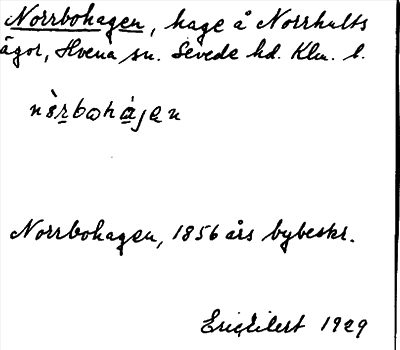 Norrbohagen, hage å Norrhults
ägor, Hvena sn. Sevede hd. Klm. l.
nò̀rbωhàjen
Norrbohagen, 1856 års bybeskr.
Eric Elert 1929